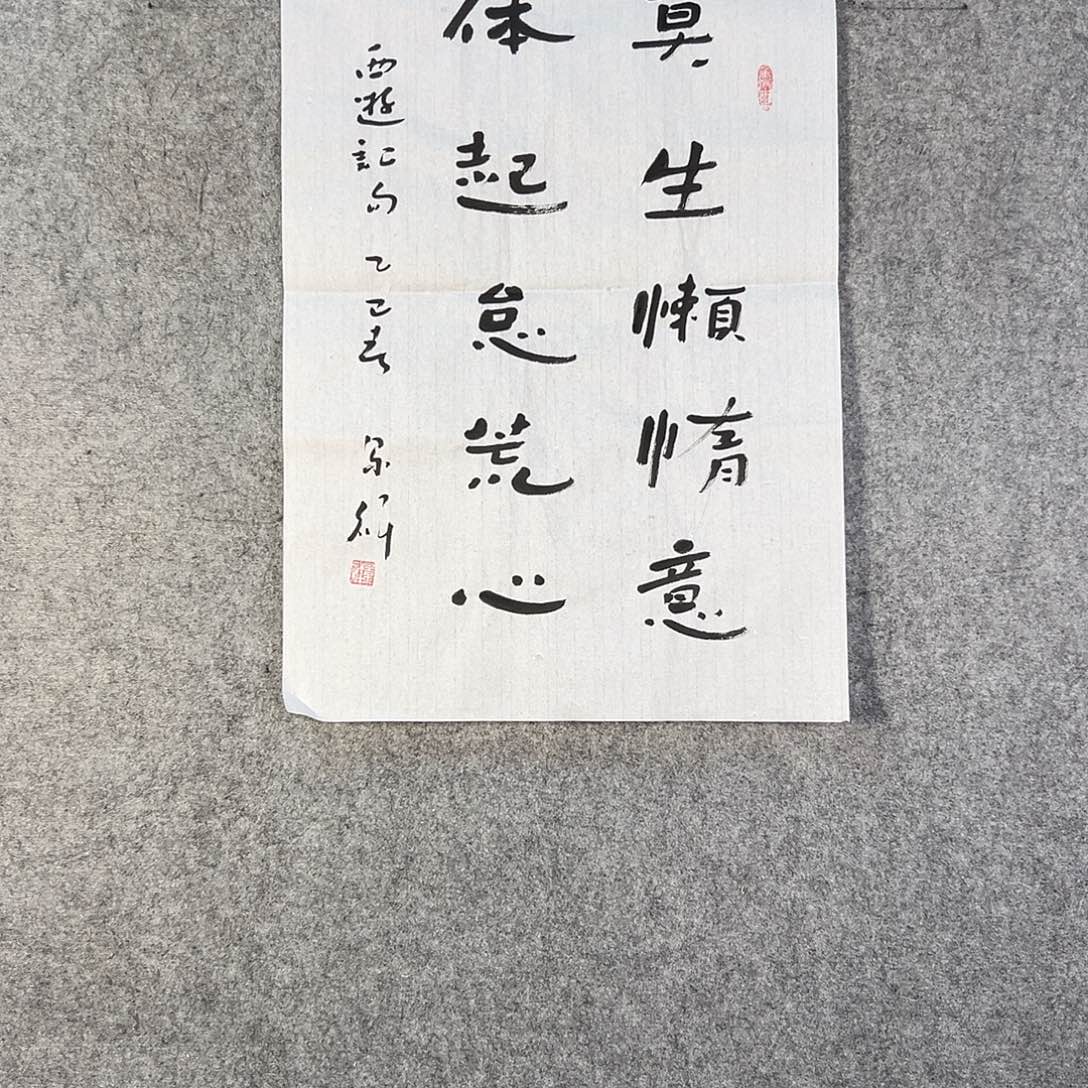 莫生懶惰意
休起怠荒心
西遊記句 乙巳春